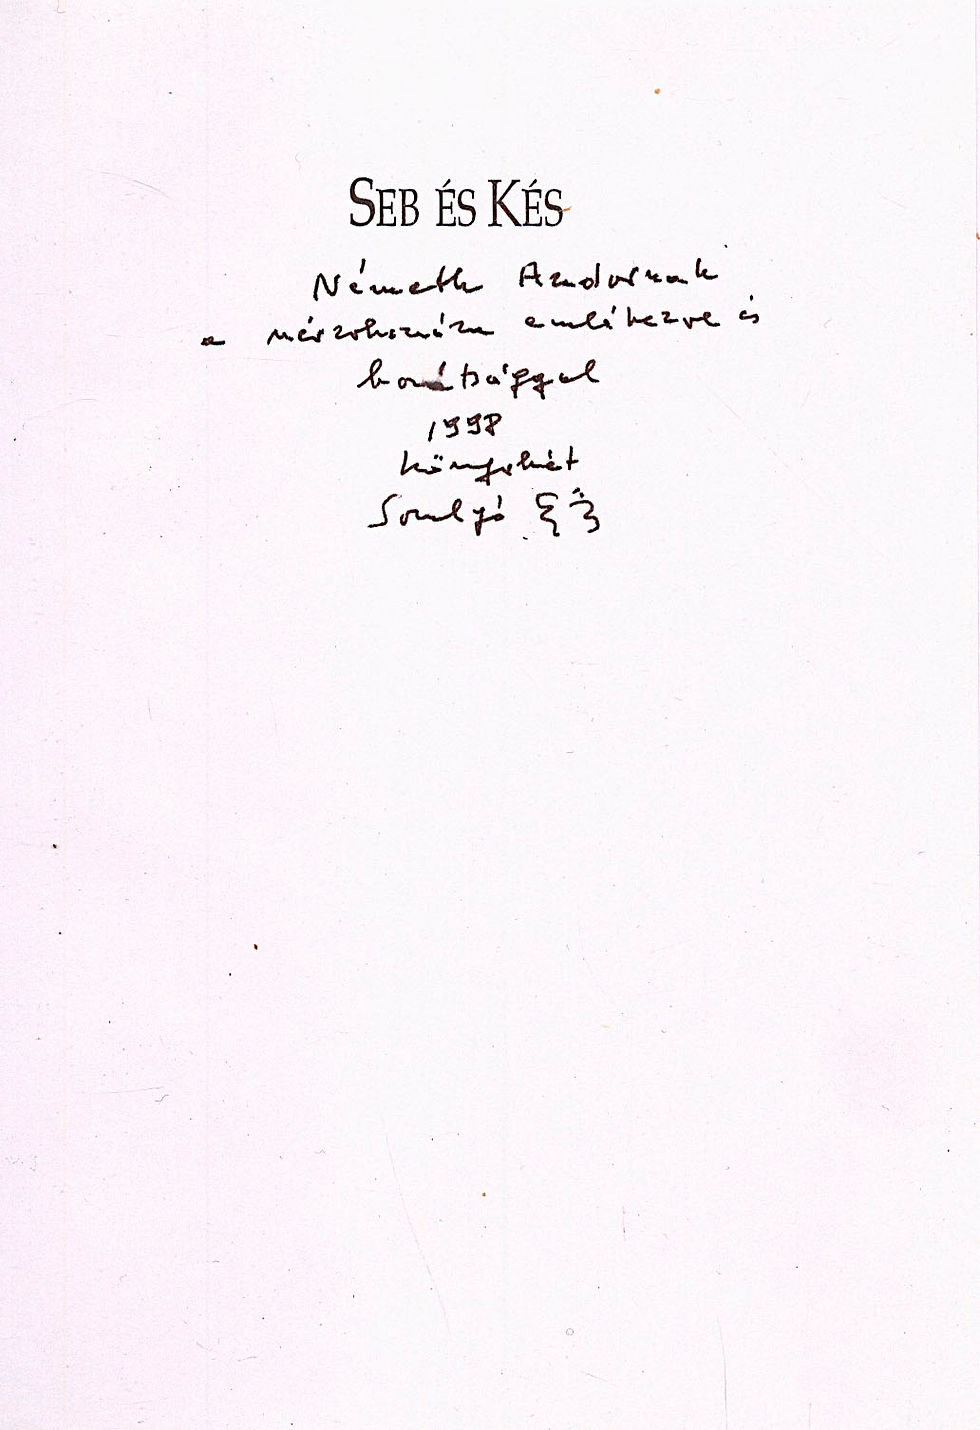 SEB ÉS KÉS
Németh Andornak
a emlékezve és
barátsággal
1998
könyvhét
Somlyó